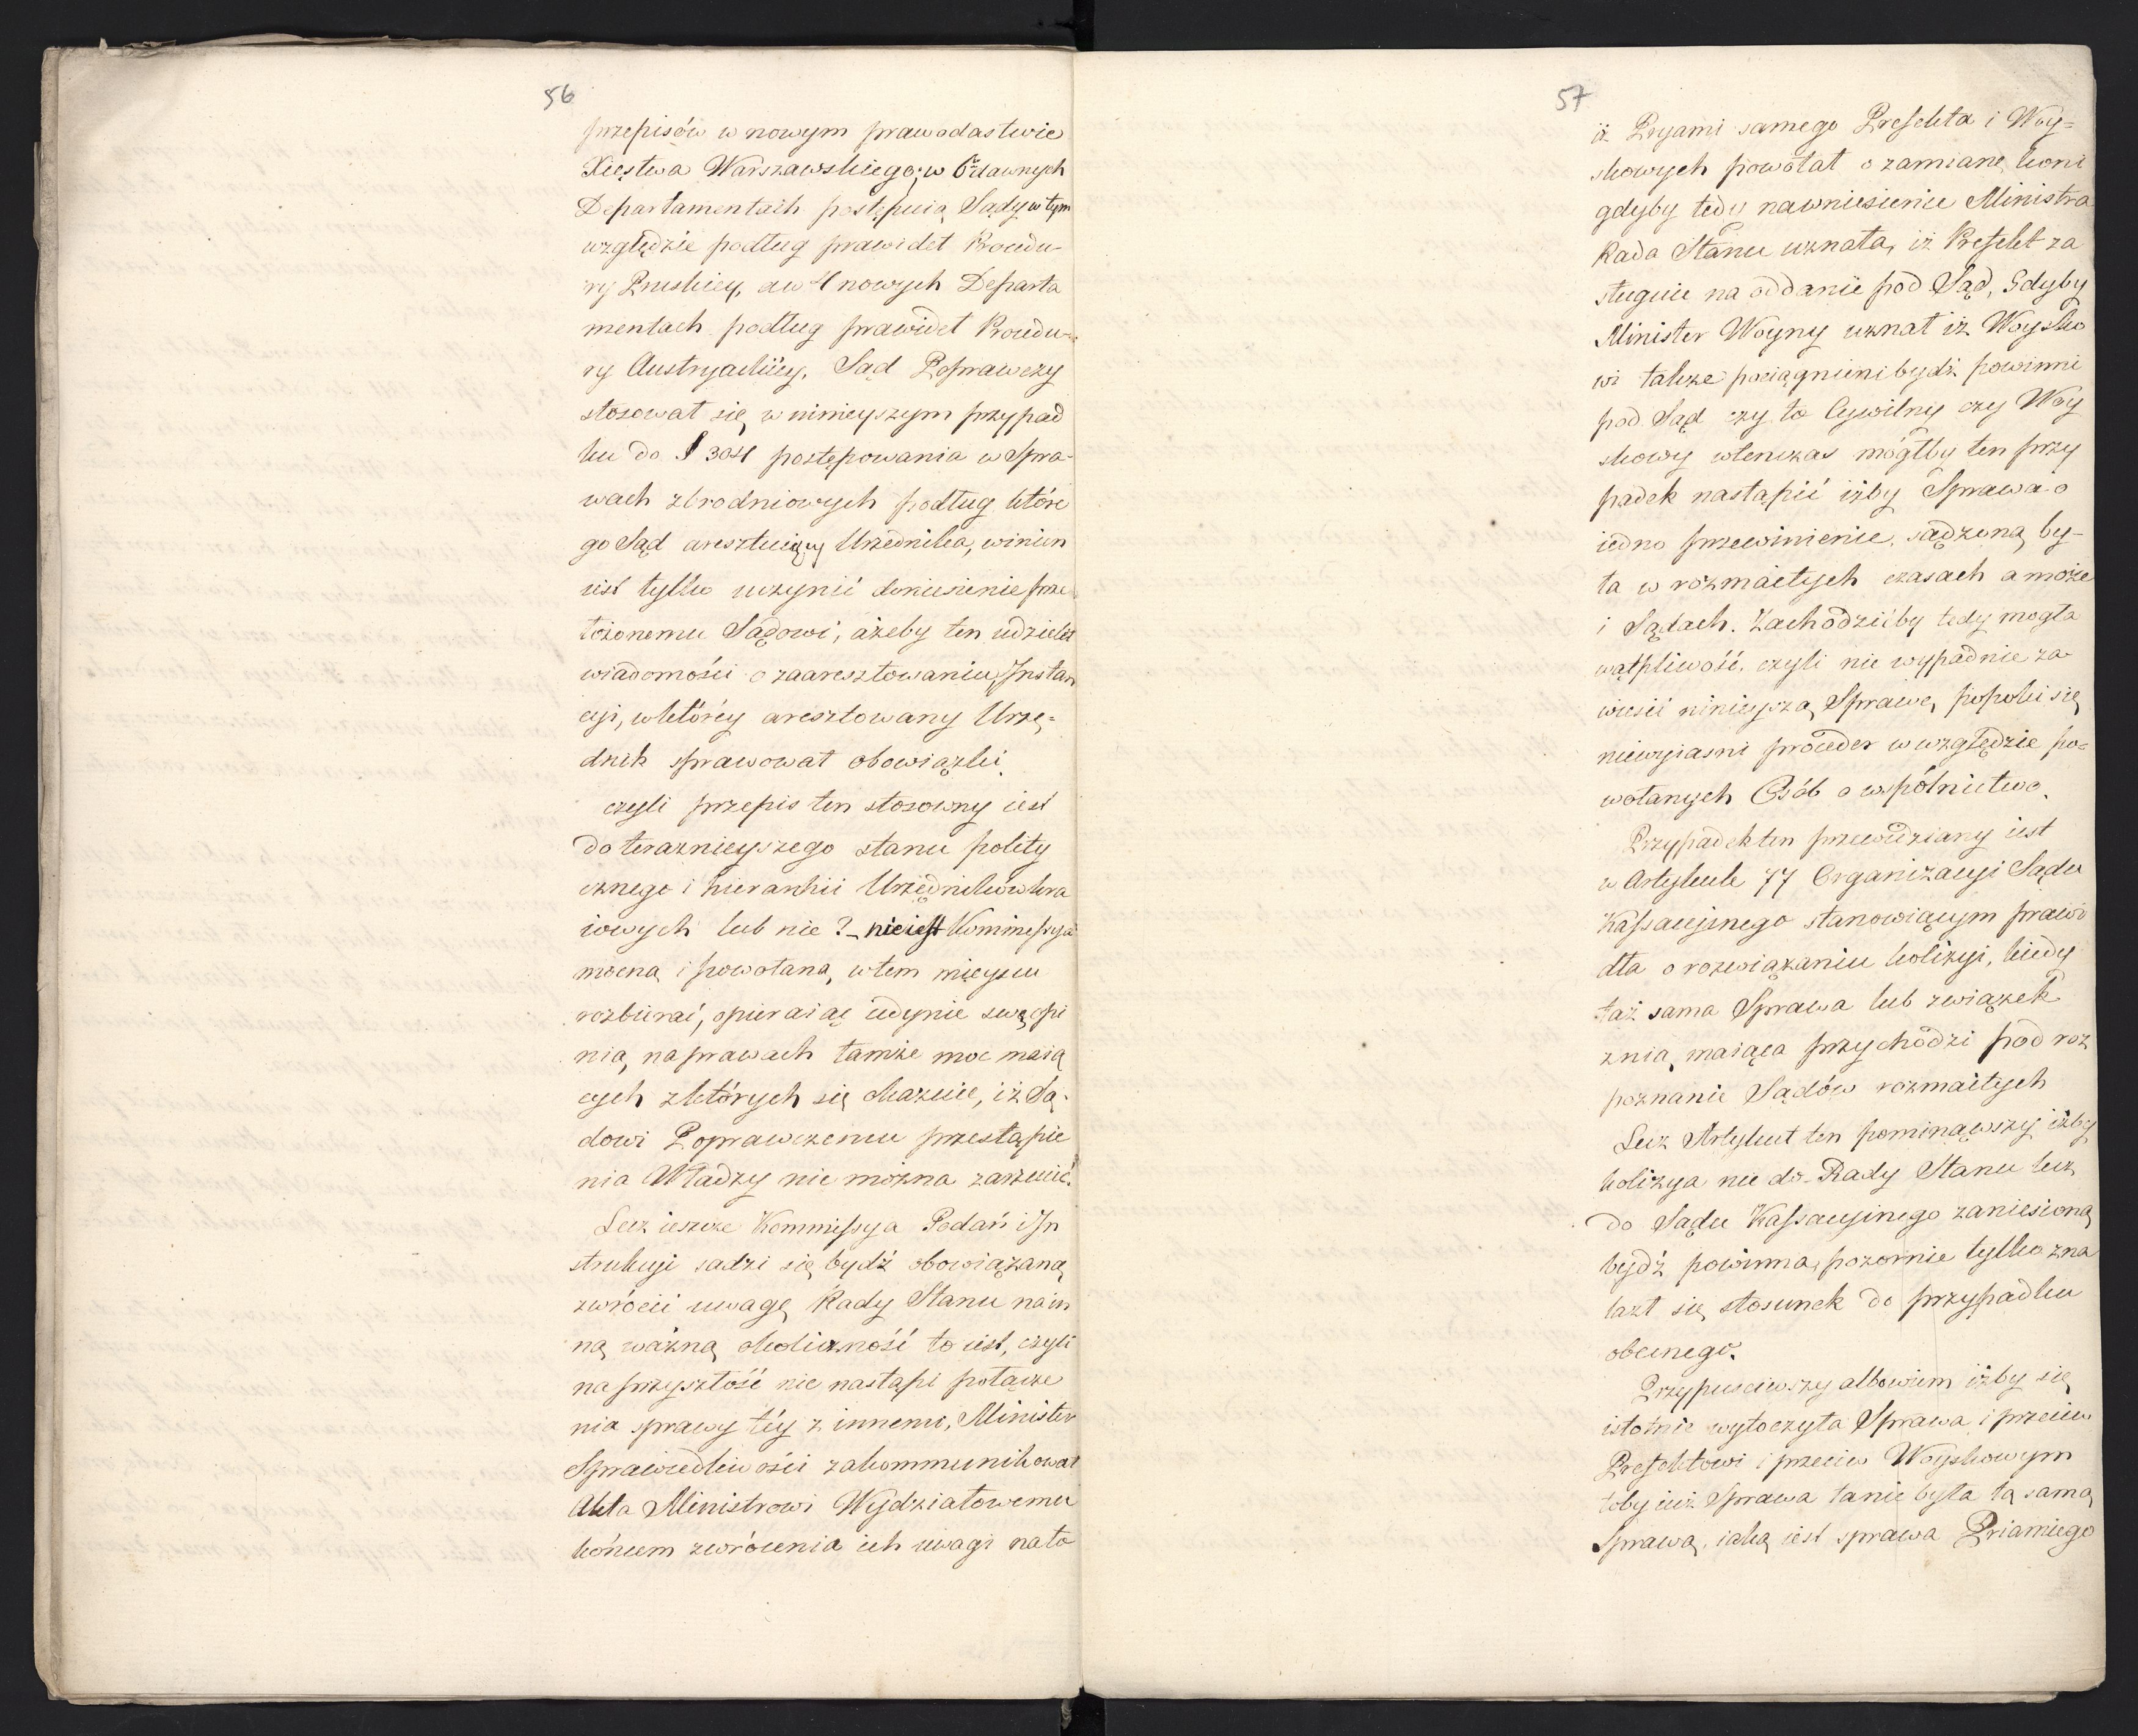 56
przepisów w nowym prawodastwie
Xięstwa Warszawskiego; w 6 dawnych
Departamentach postępuią Sądy w tym
względzie podług prawideł Procedu-
ry Pruskiey, a w 4 nowych Departa
mentach podług prawideł Procedu-
ry Austryackiey. Sąd Poprawczy
stosował się w ninieyszym przypad
ku do § 304 postępowania w Spra-
wach zbrodniowych podług któré
go Sąd aresztuiący Urzednika, winien
iest tylko uczynić doniesienie prze
łożonemu Sądowi, ażeby ten udzielił
wiadomości o zaaresztowaniu Instan
cyi, w któréy aresztowany Urzę-
dnik sprawował obowiązki.
czyli przepis ten stosowny iest
do teraznieyszego stanu polity
cznego i hierarhii Urzędników kra
iowych lub nie? – nie iest Kommissya
mocną i powołaną, w tem mieyscu
rozbierać, opieraiąc iedynie swą opi
nią, na prawach tamże moc maią
cych z których się okazuie, iż Są-
dowi Poprawczemu przestąpie
nia Władzy nie można zarzucić.
Lecz ieszcze Kommissya Podań i In
strukcyi sadzi się bydź obowiązaną
zwrócić uwagę Rady Stanu na in
ną ważną okoliczność to iest, czyli
na przyszłość nie nastąpi połącze
nia sprawy téy z innemi, Minister
Sprawiedliwości zakommunikował
Akta Ministrowi Wydziałowemu
końcem zwrócenia ich uwagi na to
57
iż Pryami samego Prefekta i Woy=
skowych powołał o zamianę koni
gdyby tedy na wniesienie Ministra
Rada Stanu uznała, iż Prefekt za
sługuie na oddanie pod Sąd, Gdyby
Minister Woyny uznał iż Woysko
wi także pociągnieni bydź powinni
pod Sąd czy to Cywilny czy Woy
skowy wtenczas mógłby ten przy
padek nastąpić iżby Sprawa o
iedno przewinienie sądzoną by-
ła w rozmaitych czasach a może
i Sądach. Zachodzićby tedy mogła
wątpliwość, czyli nie wypadnie za
wiesić ninieyszą Sprawę, pópoki się
niewyiasni proceder w względzie po=
wołanych Osób o wspólnictwo.
Przypadek ten przewidziany iest
w Artykule 77 Organizacyi Sądu
Kassacyinego stanowiącym prawi
dła o rozwiązaniu kolizyi, kiedy
taż sama Sprawa lub związek
z nią maiąca przychodzi pod roz
poznanie Sądów rozmaitych
Lecz Artykuł ten pominąwszy iżby
kolizya nie do Rady Stanu lecz
do Sądu Kassacyinego zaniesioną
bydź powinna, pozornie tylko zna
lazł się stosunek do przypadku
obecnego.
Przypuściwszy albowiem iżby się
istotnie wytoczyła Sprawa i przeciw
Prefektowi i przeciw Woyskowym
toby iuż Sprawa ta nie była tą samą
Sprawą, iaką iest sprawa Priamiego